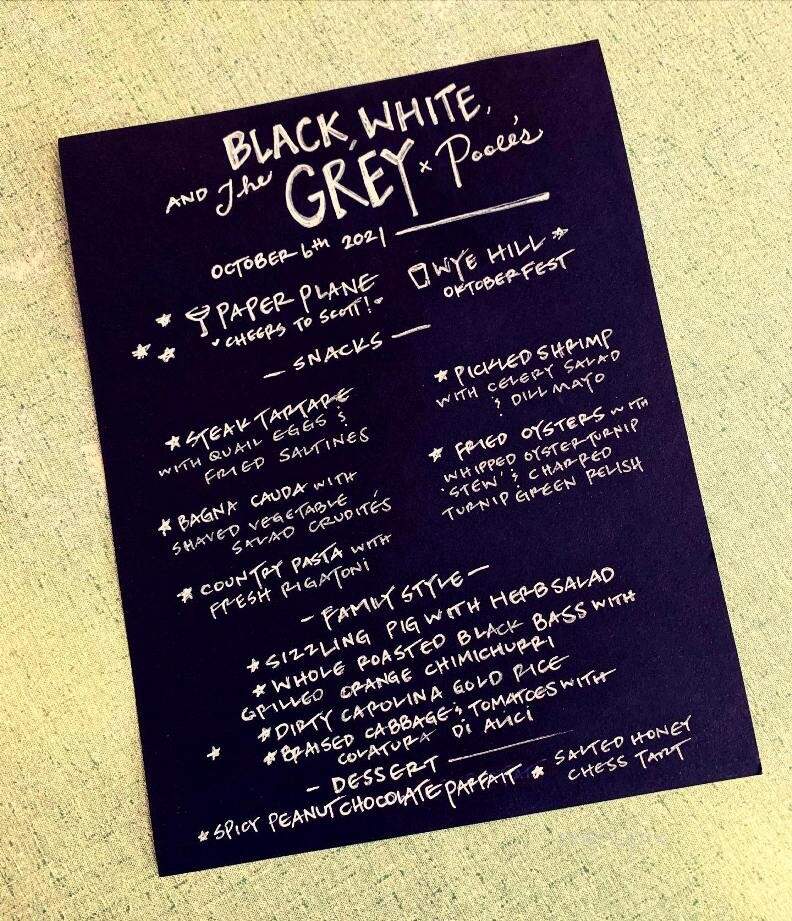 BLACK, WHITE,
AND The GREY × Poole's
OCTOBER 6th 2021
PAPER PLANE
CHEERS TO SCOTT!
WYE HILL
OKTOBERFEST
- SNACKS -
STEAK TARTARE
WITH QUAIL EGGS &
FRIED SALTINES
BAGNA CAUDA WITH
SHAVED VEGETABLE
SALAD CRUDITÉS
COUNTRY PASTA WITH
FRESH RIGATONI
PICKLED SHRIMP
WITH CELERY SALAD
& DILL MAYO
FRIED OYSTERS WITH
WHIPPED OYSTER TURNIP
'STEW' & CHARRED
TURNIP GREEN RELISH
- FAMILY STYLE -
SIZZLING PIG WITH HERB SALAD
WHOLE ROASTED BLACK BASS WITH
GRILLED ORANGE CHIMICHURRI
DIRTY CAROLINA GOLD RICE
BRAISED CABBAGE & TOMATOES WITH
COLATURA DI ALICI
- DESSERT -
SPICY PEANUT CHOCOLATE PARFAIT
SALTED HONEY
CHESS TART